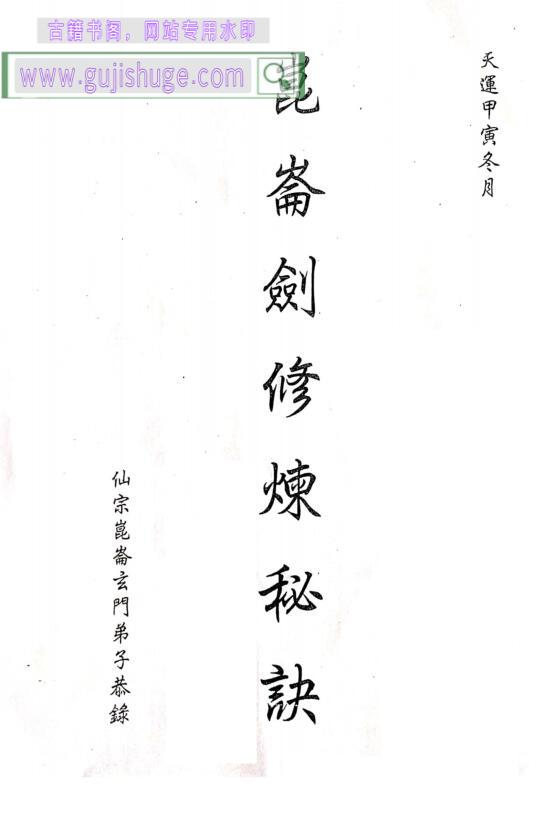 古籍书阁，网站专用水印
www.gujishuge.com
天運甲寅冬月
崑崙劍修煉秘訣
仙宗崑崙玄門弟子恭錄